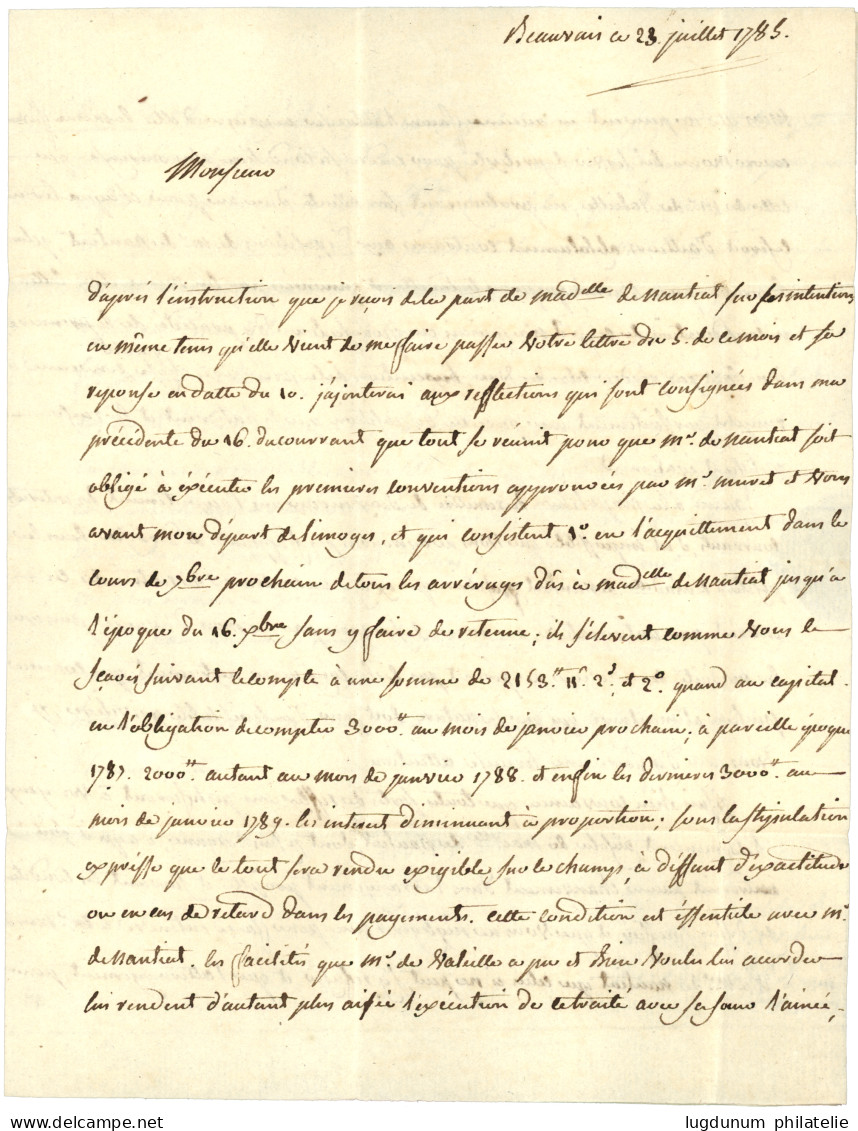 Beauvais ce 23. juillet 1785.
Monsieur
d'après l'instruction que je reçois de la part de mad<sup>elle</sup> de Nantiat sur ses intentions
en même tems qu'elle vient de me faire passer votre lettre du 5. de ce mois et sa
reponse en datte du 10. j'ajouterai aux refflections qui sont consignées dans ma
précédente du 16. du courrant que tout se réunit pour que m<sup>r</sup>. de Nantiat soit
obligé à éxécuter les premieres conventions approuvées par m<sup>r</sup>. muret et vous
avant mon départ de limoges, et qui consistent 1°. en l'acquittement dans le
cours de 7<sup>bre</sup> prochain de tous les arrérages dûs à mad<sup>elle</sup> de Nantiat jusqu'à
l'époque du 16. x<sup>bre</sup> sans y faire de retenue; ils s'élevent comme vous le
sçavés suivant le compte à une somme de 2153<sup>tt</sup>. 11<sup>s</sup>. 2<sup>d</sup>. et 2°. quand au capital
en l'obligation de compter 3000<sup>tt</sup>. au mois de janvier prochain; à pareille époque
1787. 2000<sup>tt</sup>. autant au mois de janvier 1788. et enfin les dernieres 3000<sup>tt</sup>. au
mois de janvier 1789. les interets diminuant à proportion; sous la stipulation
expresse que le tout sera rendu exigible sur le champs, à deffaut d'exactitude
ou en cas de retard dans les payements. cette condition est éssentiele avec m<sup>r</sup>.
de Nantiat. les facilités que m<sup>r</sup>. de a pu et bien voulu lui accorder
lui rendent d'autant plus aisée l'exécution de ce traité avec sa sœur l'ainée,
lugdunum philatelie